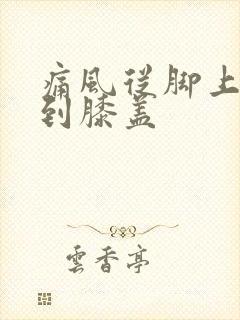 痛風從脚上
到膝盖
雲香亭